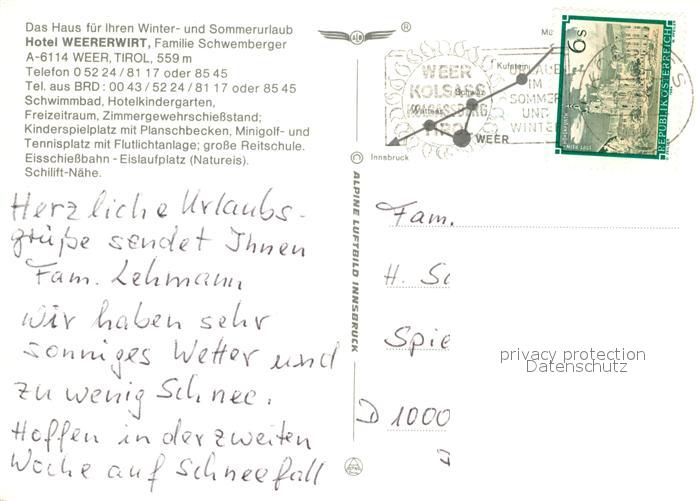 Das Haus für Ihren Winter- und Sommerurlaub
Hotel WEERERWIRT, Familie Schwemberger
A-6114 WEER, TIROL, 559 m
Telefon 0 52 24 / 81 17 oder 85 45
Tel. aus BRD: 00 43 / 52 24 / 81 17 oder 85 45
Schwimmbad, Hotelkindergarten,
Freizeitraum, Zimmergewehrschießstand;
Kinderspielplatz mit Planschbecken, Minigolf- und
Tennisplatz mit Flutlichtanlage; große Reitschule.
Eisschießbahn - Eislaufplatz (Natureis).
Schilift-Nähe.
Herzliche Urlaubs-
grüße sendet Ihnen
Fam. Lehmann
wir haben sehr
sonniges Wetter und
zu wenig Schnee.
Hoffen in der zweiten
Woche auf Schneefall
®
© ALPINE LUFTBILD INNSBRUCK
Kufstein
Schwaz
Wattens
WEER
Innsbruck
WEER
KOLSASS
KOLSASSBERG
TIROL
URLAUB
IM
SOMMER
UND
WINTER
6 S
REPUBLIK ÖSTERREICH
Fam.
H. Sc
Spie
D 1000
privacy protection
Datenschutz